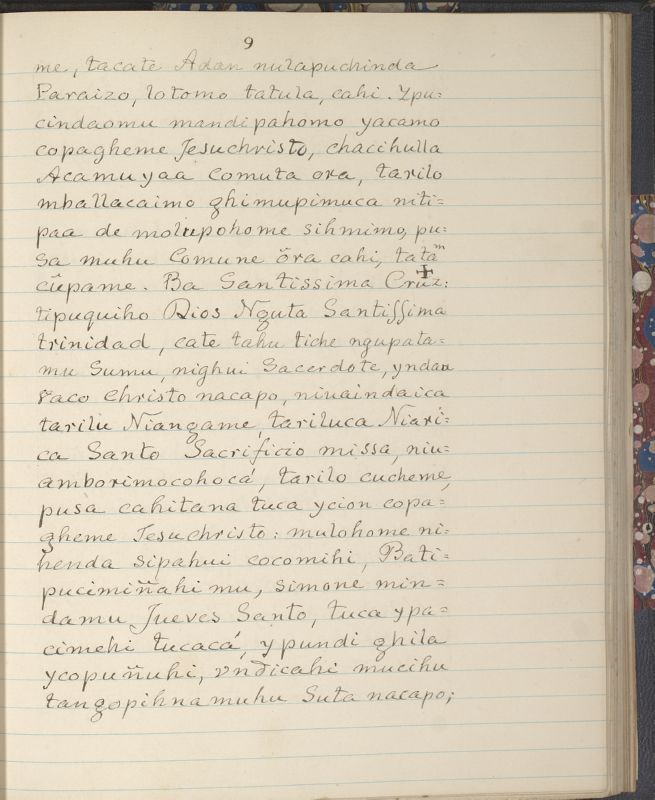 9
me, tacate Adan nulapuchinda
Paraizo, lotomo tatula, cahi. Ypu=
cindaomu mandipahomo yacamo
copagheme Jesuchristo, chacihulla
Acamuyaa Comuta ora, tarilo
mballacaimo ghimupimuca niti=
paa de molupohome sihmimo, pu=
sa muhu Comune õra cahi, tatam
cûpame. Ba Santissima Cruz:
tipuquiho Dios Nguta Santissima
trinidad, cate tahu tiche ngupata=
mu Sumu, nighui Sacerdote, yndaa
raco Christo nacapo, niuaindaica
tarilu Niangame, tariluca Niari=
ca Santo Sacrificio missa, niu=
amborimocohocá, tarilo cucheme,
pusa cahitana tuca ycion copa=
gheme Jesuchristo: mulohome ni=
henda sipahui cocomihi, Bati=
pucimiñahi mu, simone min=
damu Jueves Santo, tuca ypa=
cimehi tucacá, ypundi ghila
ycopuñuhi, vndicahi mucihu
tangopihnamuhu Suta nacapo;